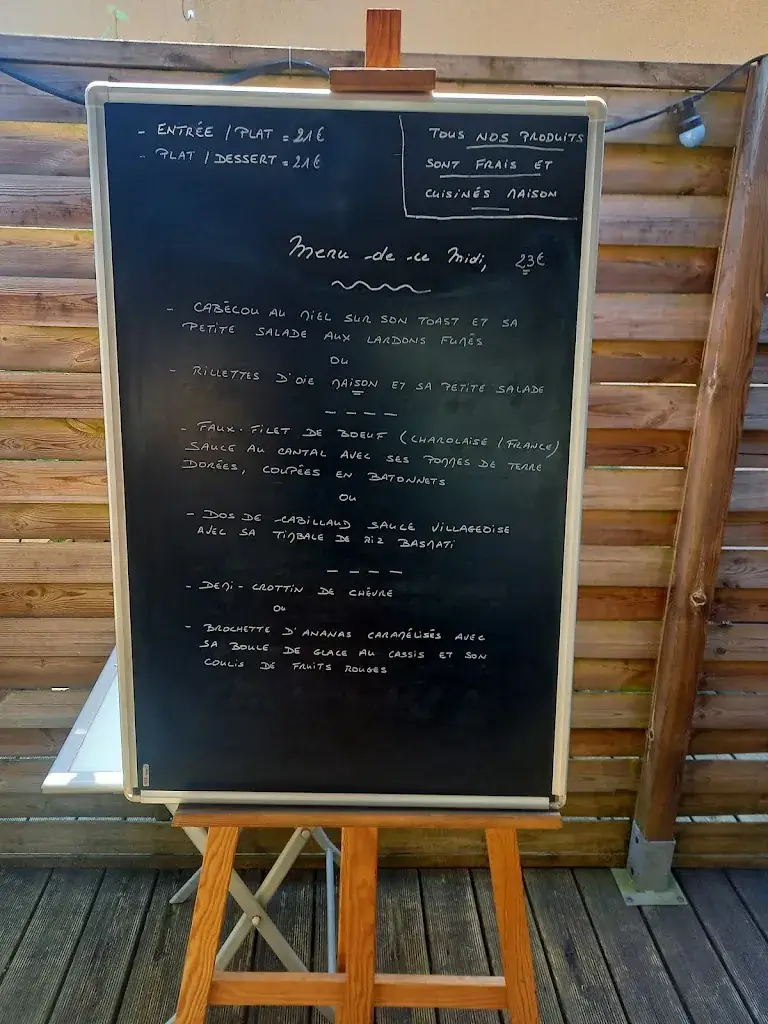 - ENTRÉE / PLAT = 21€
- PLAT / DESSERT = 21€
TOUS NOS PRODUITS
SONT FRAIS ET
CUISINÉS MAISON
Menu de ce Midi, 23€
- CABÉCOU AU MIEL SUR SON TOAST ET SA
PETITE SALADE AUX LARDONS FUMÉS
OU
- RILLETTES D'OIE MAISON ET SA PETITE SALADE
- FAUX-FILET DE BOEUF (CHAROLAISE / FRANCE)
SAUCE AU CANTAL AVEC SES POMMES DE TERRE
DORÉES, COUPÉES EN BATONNETS
OU
- DOS DE CABILLAUD SAUCE VILLAGEOISE
AVEC SA TIMBALE DE RIZ BASMATI
- DEMI-CROTTIN DE CHÈVRE
OU
- BROCHETTE D'ANANAS CARAMÉLISÉS AVEC
SA BOULE DE GLACE AU CASSIS ET SON
COULIS DE FRUITS ROUGES